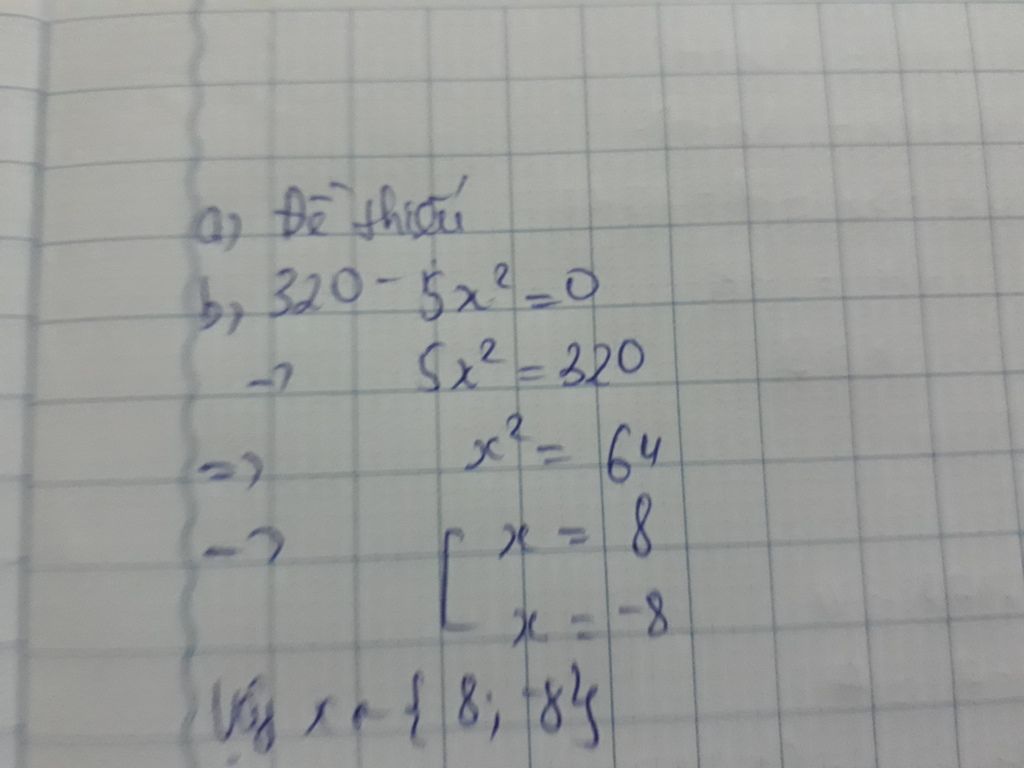 a) Đề thiếu
b) 320 - 5x² = 0
→ 5x² = 320
=> x² = 64
→ [ x = 8
x = -8
Vậy x ∈ { 8; -8}